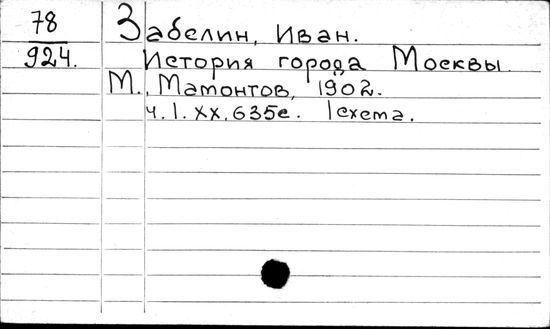 78
924.
Забелин, Иван.
История города Москвы.
М., Мамонтов, 1902.
ч. I. XX, 635с. 1схема.